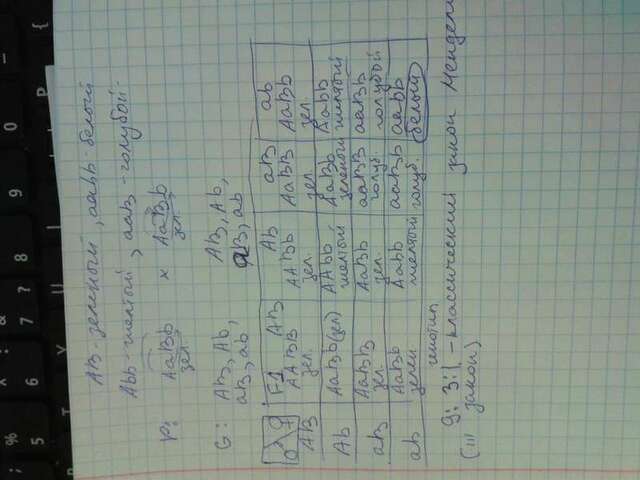 AB - зеленый, aabb - белый
Abb - желтый, aaB - голубой.
P: AaBb x AaBb
зел. зел.
G: AB, Ab, AB, Ab,
aB, ab aB, ab
F1 AB Ab aB ab
AB AABB AABb AaBB AaBb
зел. зел. зел. зел.
Ab AaBb (зел) AAbb AaBb Aabb
желтый зеленый желтый
aB AaBB AaBb aaBB aaBb
зел. зел. голуб. голубой
ab AaBb Aabb aaBB aabb
зелен желтый голуб. белый
генотип
9:3:1 - классический закон Менделя
(III закон)